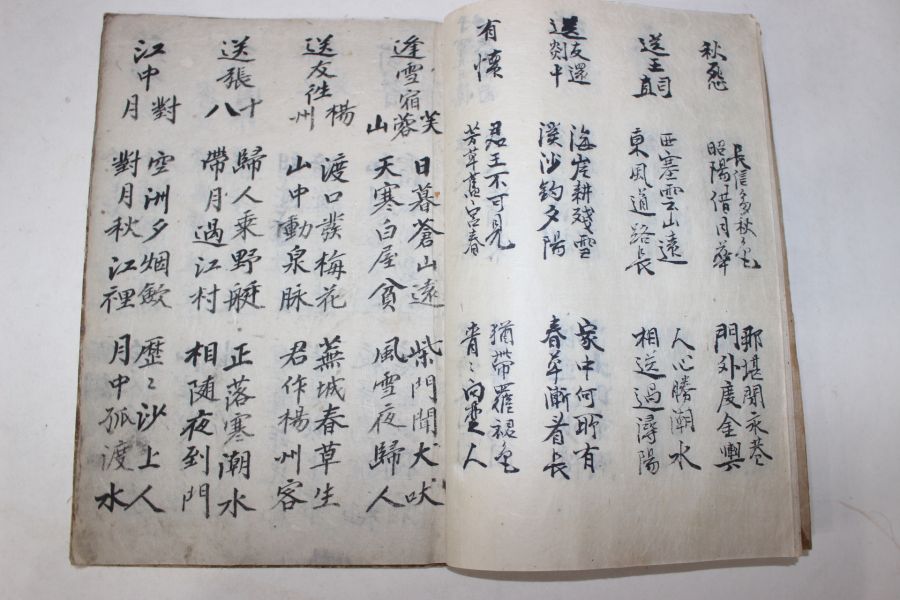 秋怨
長信多秋〻色
昭陽借月華
那堪聞永巷
門外度金輿
送王司直
西塞雲山遠
東風道路長
人心勝潮水
相送過潯陽
送友還剡中
海崖耕殘雪
溪沙釣夕陽
家中何所有
春草漸看長
有懷
君王不可見
芳草舊宮春
猶帶羅裙色
青〻向楚人
逢雪宿芙蓉山
日暮蒼山遠
天寒白屋貧
柴門聞犬吠
風雪夜歸人
送友往楊州
渡口發梅花
山中動泉脉
蕪城春草生
君作楊州客
送張十八
歸人乘野艇
帶月過江村
正落寒潮水
相隨夜到門
江中對月
空洲夕烟歛
對月秋江裡
歷〻沙上人
月中孤渡水